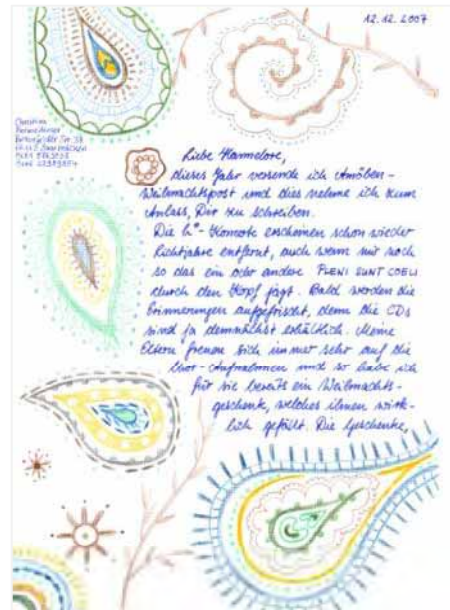 12.12.2007
Christina
Liebe Hannelore,
dieses Jahr versende ich Amöben-
Weihnachtspost und dies nehme ich zum
Anlass, Dir zu schreiben.
Die h- Konzerte erscheinen schon wieder
Lichtjahre entfernt, auch wenn mir noch
so das ein oder andere PLENI SUNT COELI
durch den Kopf jagt. Bald werden die
Erinnerungen aufgefrischt, denn die CDs
sind ja demnächst erhältlich. Meine
Eltern freuen sich immer sehr auf die
Chor-Aufnahmen und so habe ich
für sie bereits ein Weihnachts-
geschenk, welches ihnen wirk-
lich gefällt. Die Geschenke,